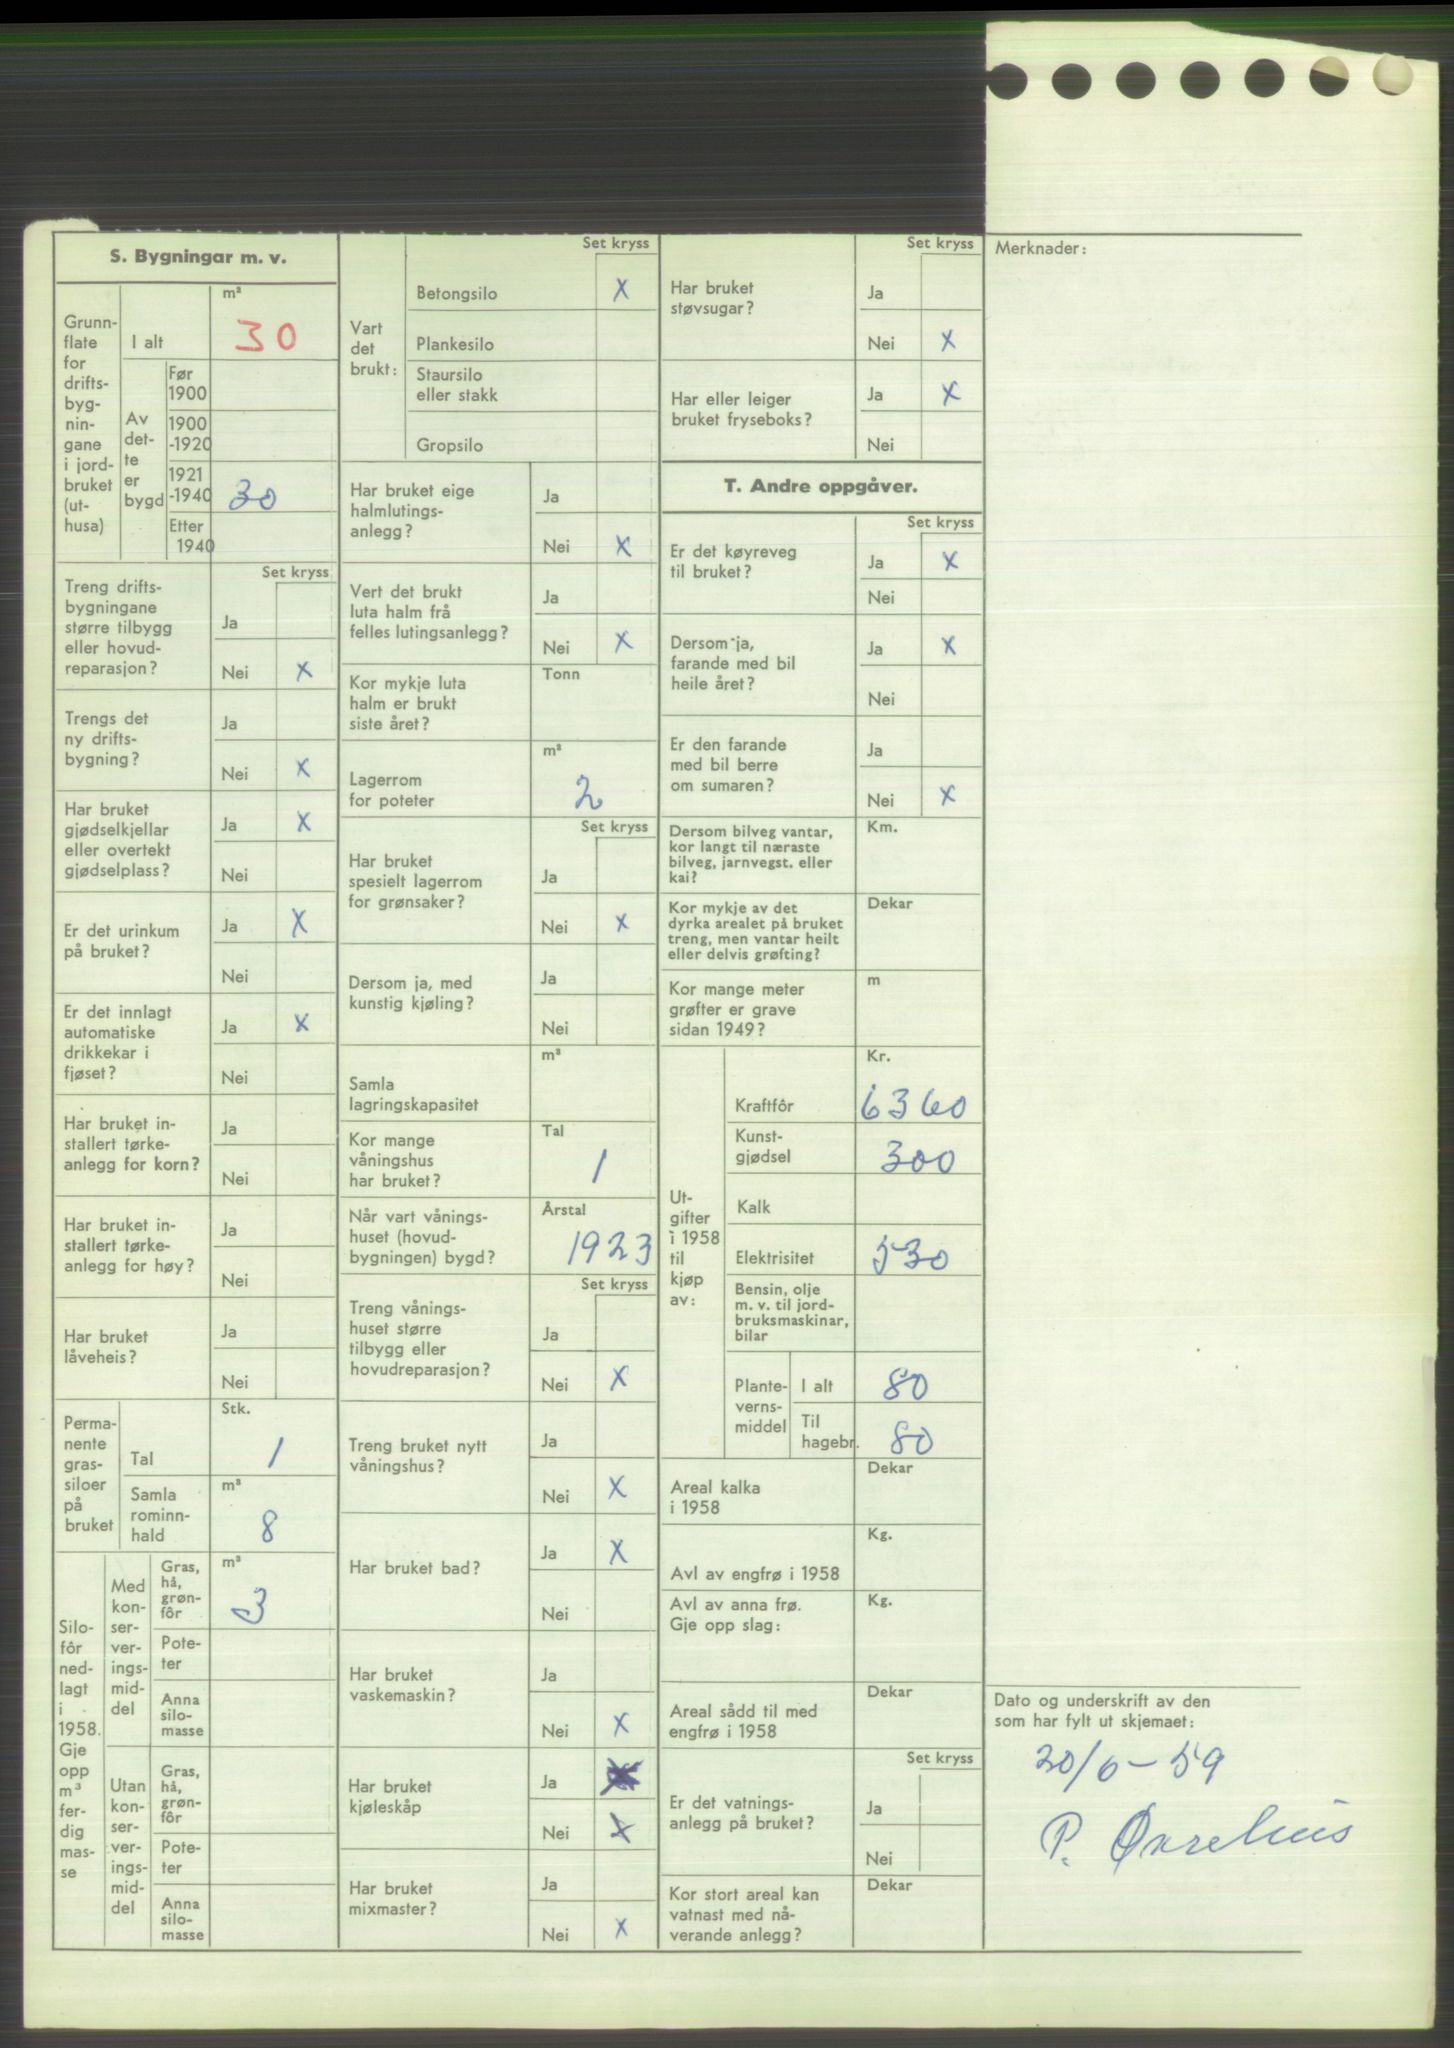 S. Bygningar m. v.
Grunn-
flate
for
drifts-
byg-
nin-
gane
i jord-
bruket
(ut-
husa)
I alt
m²
30
Av
det-
te
er
bygd
Før
1900
1900
-1920
1921
-1940
30
Etter
1940
Set kryss
Treng drifts-
bygningane
større tilbygg
eller hovud-
reparasjon?
Ja
Nei X
Trengs det
ny drifts-
bygning?
Ja
Nei X
Har bruket
gjødselkjellar
eller overtekt
gjødselplass?
Ja X
Nei
Er det urinkum
på bruket?
Ja X
Nei
Er det innlagt
automatiske
drikkekar i
fjøset?
Ja X
Nei
Har bruket in-
stallert tørke-
anlegg for korn?
Ja
Nei
Har bruket in-
stallert tørke-
anlegg for høy?
Ja
Nei
Har bruket
låveheis?
Ja
Nei
Perma-
nente
gras-
siloer
på
bruket
Tal
Stk.
1
Samla
rominn-
hald
m³
8
Silo-
fôr
ned-
lagt
i
1958.
Gje
opp
m³
fer-
dig
mas-
se
Med
kon-
ser-
ver-
ings-
mid-
del
Gras,
hå,
grøn-
fôr
m³
3
Pote-
ter
Anna
silo-
masse
Utan
kon-
ser-
ver-
ings-
mid-
del
Gras,
hå,
grøn-
fôr
Pote-
ter
Anna
silo-
masse
Vart
det
brukt:
Set kryss
Betongsilo X
Plankesilo
Staursilo
eller stakk
Gropsilo
Har bruket eige
halmlutings-
anlegg?
Ja
Nei X
Vert det brukt
luta halm frå
felles lutingsanlegg?
Ja
Nei X
Kor mykje luta
halm er brukt
siste året?
Tonn
Lagerrom
for poteter
m³
2
Set kryss
Har bruket
spesielt lagerrom
for grønsaker?
Ja
Nei X
Dersom ja, med
kunstig kjøling?
Ja
Nei
Samla
lagringskapasitet
m³
Kor mange
våningshus
har bruket?
Tal
1
Når vart vånings-
huset (hovud-
bygningen) bygd?
Årstal
1923
Set kryss
Treng vånings-
huset større
tilbygg eller
hovudreparasjon?
Ja
Nei X
Treng bruket nytt
våningshus?
Ja
Nei X
Har bruket bad?
Ja X
Nei
Har bruket
vaskemaskin?
Ja
Nei X
Har bruket
kjøleskåp
Ja
Nei X
Har bruket
mixmaster?
Ja
Nei X
Set kryss
Har bruket
støvsugar?
Ja
Nei X
Har eller leiger
bruket fryseboks?
Ja X
Nei
T. Andre oppgåver.
Set kryss
Er det køyreveg
til bruket?
Ja X
Nei
Dersom ja,
farande med bil
heile året?
Ja X
Nei
Er den farande
med bil berre
om sumaren?
Ja
Nei X
Dersom bilveg vantar,
kor langt til næraste
bilveg, jarnvegst. eller
kai?
Km.
Kor mykje av det
dyrka arealet på bruket
treng, men vantar heilt
eller delvis grøfting?
Dekar
Kor mange meter
grøfter er grave
sidan 1949?
m
Ut-
gifter
i 1958
til
kjøp
av:
Kr.
Kraftfôr 6360
Kunst-
gjødsel 300
Kalk
Elektrisitet 530
Bensin, olje
m. v. til jord-
bruksmaskinar,
bilar
Plante-
verns-
middel
I alt 80
Til
hagebr. 80
Areal kalka
i 1958
Dekar
Avl av engfrø i 1958
Kg.
Avl av anna frø.
Gje opp slag:
Kg.
Areal sådd til med
engfrø i 1958
Dekar
Set kryss
Er det vatnings-
anlegg på bruket?
Ja
Nei
Kor stort areal kan
vatnast med nå-
verande anlegg?
Dekar
Merknader:
Dato og underskrift av den
som har fylt ut skjemaet:
20/6-59
P.